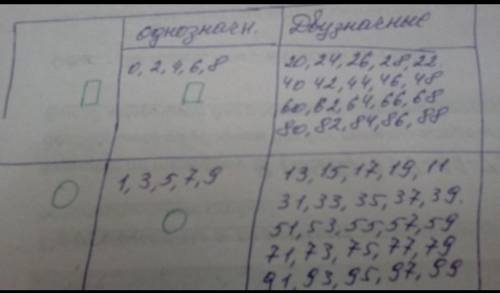 однозначн. Двузначные
0, 2, 4, 6, 8
20, 24, 26, 28, 22.
40 42, 44, 46, 48
60, 62, 64, 66, 68
80, 82, 84, 86, 88
1, 3, 5, 7, 9
13, 15, 17, 19, 11
31, 33, 35, 37, 39.
51, 53, 55, 57, 59
71, 73, 75, 77, 79
91, 93, 95, 97, 99